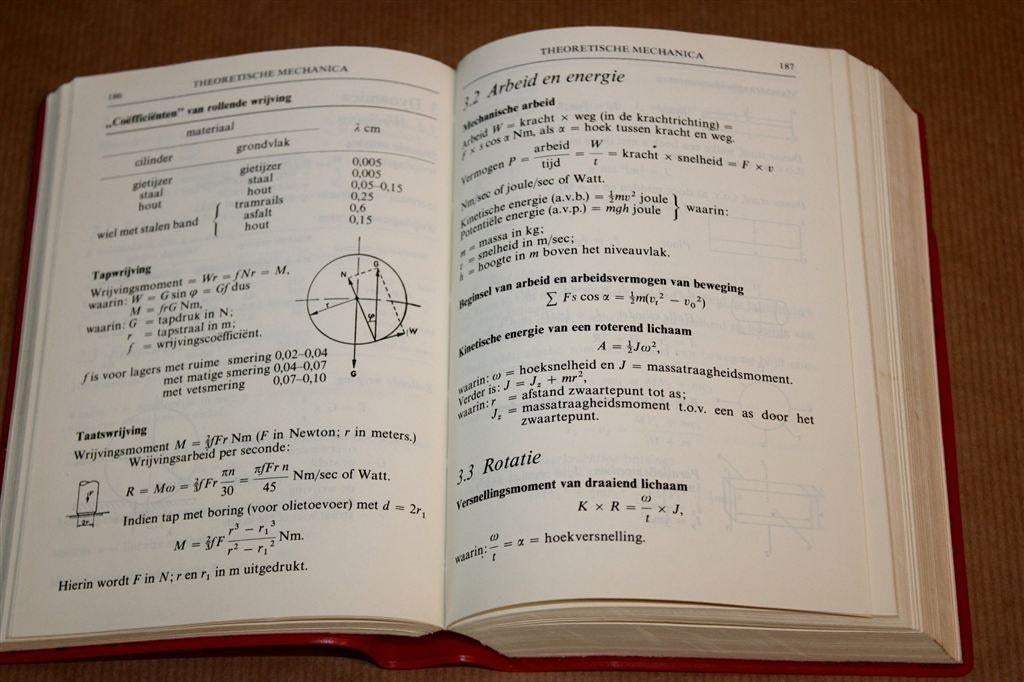 186
THEORETISCHE MECHANICA
„Coëfficiënten” van rollende wrijving
materiaal
λ cm
cilinder grondvlak
gietijzer gietijzer 0,005
staal staal 0,005
hout hout 0,05–0,15
wiel met stalen band { tramrails 0,25
asfalt 0,6
hout 0,15
Tapwrijving
Wrijvingsmoment = Wr = fNr = M,
waarin: W = G sin φ = Gf dus
M = frG Nm,
waarin: G = tapdruk in N;
r = tapstraal in m;
f = wrijvingscoëfficiënt.
f is voor lagers met ruime smering 0,02–0,04
met matige smering 0,04–0,07
met vetsmering 0,07–0,10
N
G
r
φ
W
G
Taatswrijving
Wrijvingsmoment M = ⅔fFr Nm (F in Newton; r in meters.)
Wrijvingsarbeid per seconde:
R = Mω = ⅔fFr πn/30 = πfFr n/45 Nm/sec of Watt.
F
2r
Indien tap met boring (voor olietoevoer) met d = 2r₁
M = ⅔fF (r³ − r₁³)/(r² − r₁²) Nm.
Hierin wordt F in N; r en r₁ in m uitgedrukt.
THEORETISCHE MECHANICA
187
3.2 Arbeid en energie
Mechanische arbeid
Arbeid W = kracht × weg (in de krachtrichting) =
F × s cos α Nm, als α = hoek tussen kracht en weg.
Vermogen P = arbeid/tijd = W/t = kracht × snelheid = F × v
Nm/sec of joule/sec of Watt.
Kinetische energie (a.v.b.) = ½mv² joule
Potentiële energie (a.v.p.) = mgh joule } waarin:
m = massa in kg;
v = snelheid in m/sec;
h = hoogte in m boven het niveauvlak.
Beginsel van arbeid en arbeidsvermogen van beweging
∑ Fs cos α = ½m(vₜ² − v₀²)
Kinetische energie van een roterend lichaam
A = ½Jω²,
waarin: ω = hoeksnelheid en J = massatraagheidsmoment.
Verder is: J = J_z + mr²,
waarin: r = afstand zwaartepunt tot as;
J_z = massatraagheidsmoment t.o.v. een as door het
zwaartepunt.
3.3 Rotatie
Versnellingsmoment van draaiend lichaam
K × R = ω/t × J,
waarin: ω/t = α = hoekversnelling.